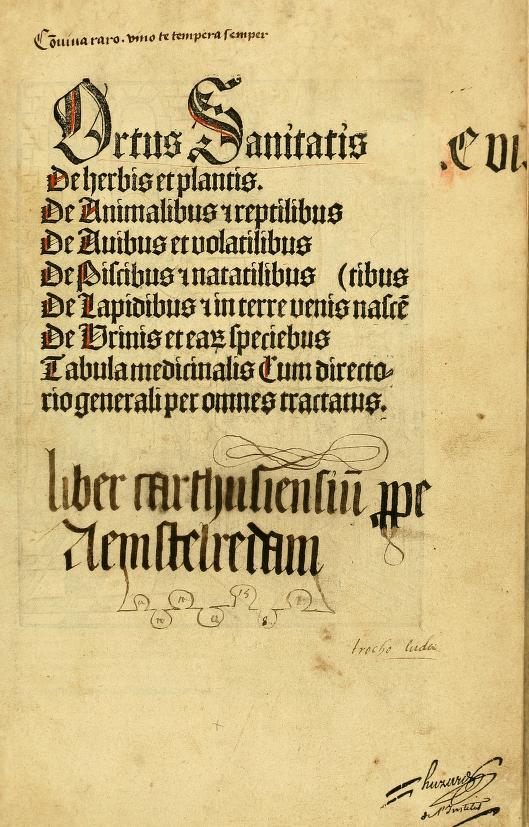 Cōviva raro. vino te tempera semper
Ortus Sanitatis
De herbis et plantis.
De Animalibus ⁊ reptilibus
De Auibus et volatilibus
De Piscibus ⁊ natatilibus (tibus
De Lapidibus ⁊ in terre venis nascē
De Vrinis et eaꝝ speciebus
Tabula medicinalis Cum directo-
rio generali per omnes tractatus.
.C VI.
liber carthusiensiū ꝓpe
Aemstelredam
15
8
trocho lude
huzard
de l'Institut